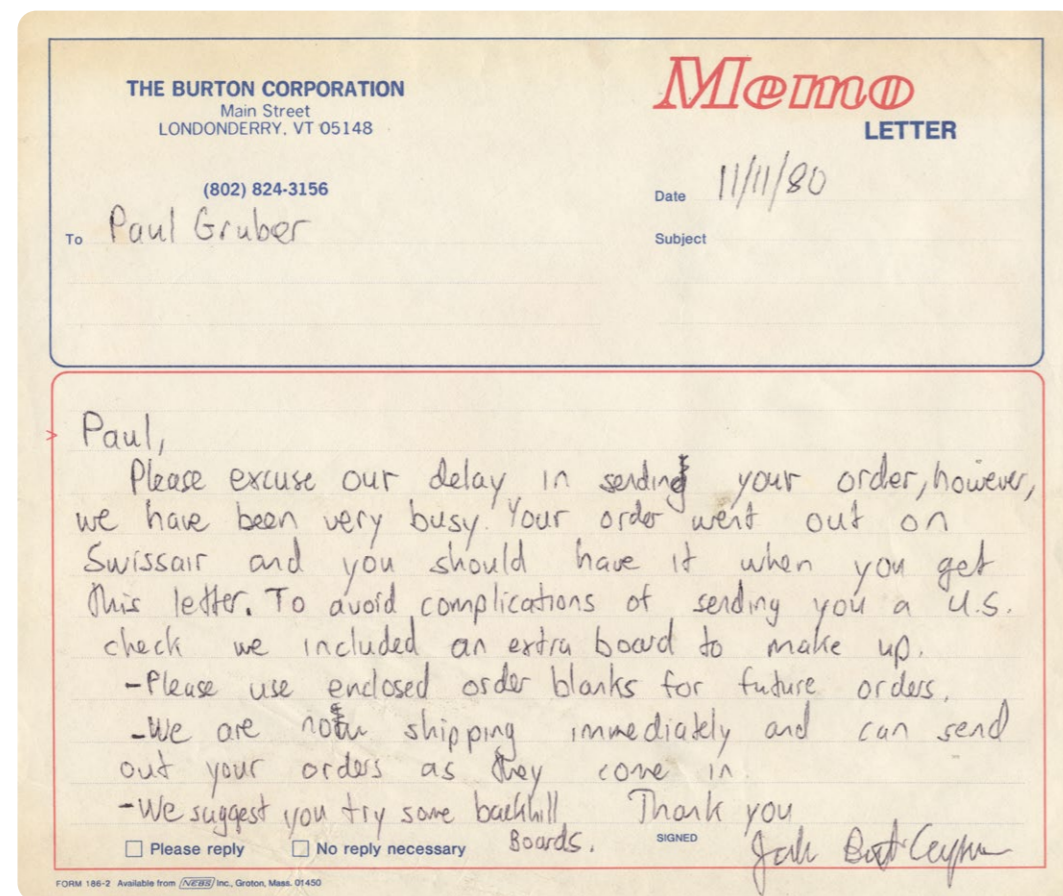 THE BURTON CORPORATION
Main Street
LONDONDERRY, VT 05148
(802) 824-3156
Memo
LETTER
Date 11/11/80
To Paul Gruber
Subject
Paul,
Please excuse our delay in sending your order, however,
we have been very busy. Your order went out on
Swissair and you should have it when you get
this letter. To avoid complications of sending you a U.S.
check we included an extra board to make up.
-Please use enclosed order blanks for future orders.
-We are now shipping immediately and can send
out your orders as they come in.
-We suggest you try some backhill Thank you
Boards.
Please reply No reply necessary SIGNED
FORM 186-2 Available from NEBS Inc., Groton, Mass. 01450